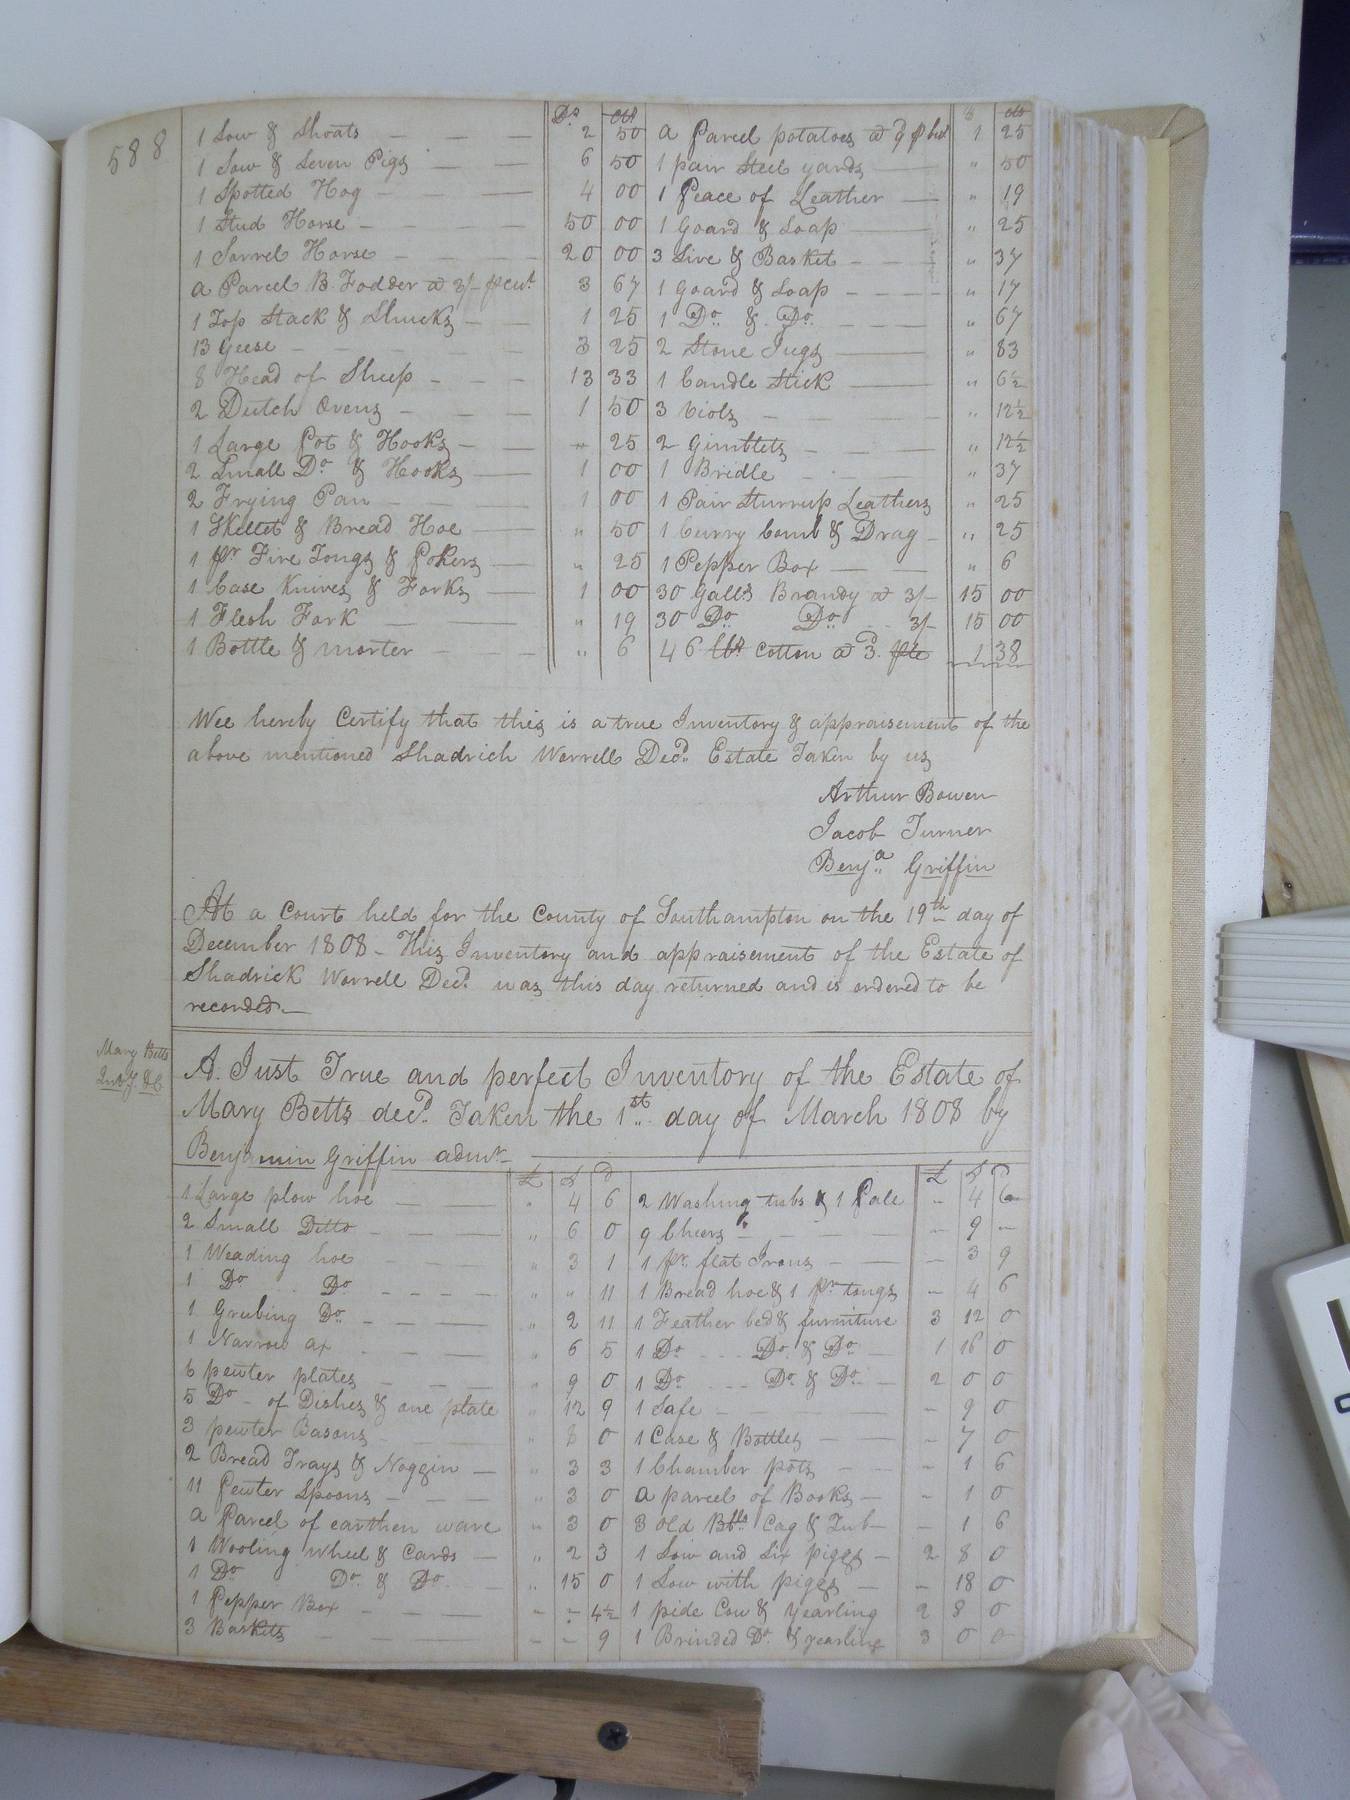 588
Ds. cts
1 Sow & Shoats 2 50
1 Sow & Seven Pigs 6 50
1 Spotted Hog 4 00
1 Stud Horse 50 00
1 Sorrel Horse 20 00
a Parcel B. Fodder @ 3/- pr Cwt 3 67
1 Top Stack & Shucks 1 25
13 Geese 3 25
8 Head of Sheep 13 33
2 Dutch Ovens 1 50
1 Large Pot & Hooks " 25
2 Small Do & Hooks 1 00
2 Frying Pan 1 00
1 Skillet & Bread Hoe " 50
1 pr Fire Tongs & Pokers " 25
1 Case Knives & Forks 1 00
1 Flesh Fork " 19
1 Bottle & morter " 6
$ cts
a Parcel potatoes @ bul 1 25
1 pair Steel yards " 50
1 Peace of Leather " 19
1 Goard & Soap " 25
3 Sive & Basket " 37
1 Goard & Soap " 17
1 Do & Do " 67
2 Stone Jugs " 83
1 Candle Stick " 6½
3 Viols " 12½
2 Gimblets " 12½
1 Bridle " 37
1 Pair Sturrup Leathers " 25
1 Curry Comb & Drag " 25
1 Pepper Box " 6
30 Galls Brandy @ 3/- 15 00
30 Do Do 3/- 15 00
46 lbs Cotton @ 3d 1 38
Wee hereby Certify that this is a true Inventory & appraisement of the
above mentioned Shadrich Worrell Decd. Estate Taken by us
Arthur Bowen
Jacob Turner
Benja. Griffin
At a Court held for the County of Southampton on the 19th day of
December 1808 - This Inventory and appraisement of the Estate of
Shadrick Worrell Decd. was this day returned and is ordered to be
recorded
Mary Betts
Invy. &C
A Just True and perfect Inventory of the Estate of
Mary Betts decd. Taken the 1st. day of March 1808 by
Benjamin Griffin admr
£ S d
1 Large plow hoe " 4 6
2 Small Ditto " 6 0
1 Weading hoe " 3 1
1 Do Do " " 11
1 Grubing Do " 2 11
1 Narrow ax " 6 5
6 pewter plates " 9 0
5 Do - of Dishes & one plate " 12 9
3 pewter Basons " 8 0
2 Bread Trays & Noggin " 3 3
11 Pewter Spoons " 3 0
a Parcel of earthen ware " 3 0
1 Wooling wheel & Cards " 2 3
1 Do Do & Do " 15 0
1 Pepper Box - - 4½
3 Baskets - - 9
£ S d
2 Washing tubs & 1 Pale - 4 6
9 Cheers - 9 -
1 pr. flat Irons - 3 9
1 Bread hoe & 1 pr tongs - 4 6
1 Feather bed & furniture 3 12 0
1 Do Do & Do 1 16 0
1 Do Do & Do 2 0 0
1 Safe - 9 0
1 Case & Bottles - 7 0
1 Chamber pots - 1 6
a parcel of Books - 1 0
3 old Cag & Tub - 1 6
1 Sow and Six piggs 2 8 0
1 Sow with piggs - 18 0
1 pide Cow & Yearling 2 8 0
1 Brinded Do & yearling 3 0 0